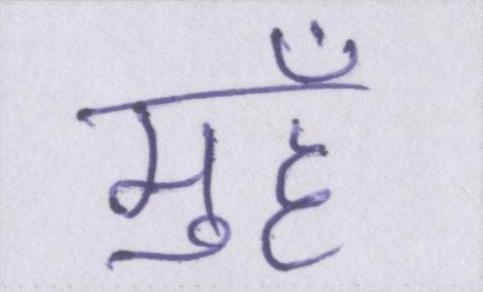 मुहँ